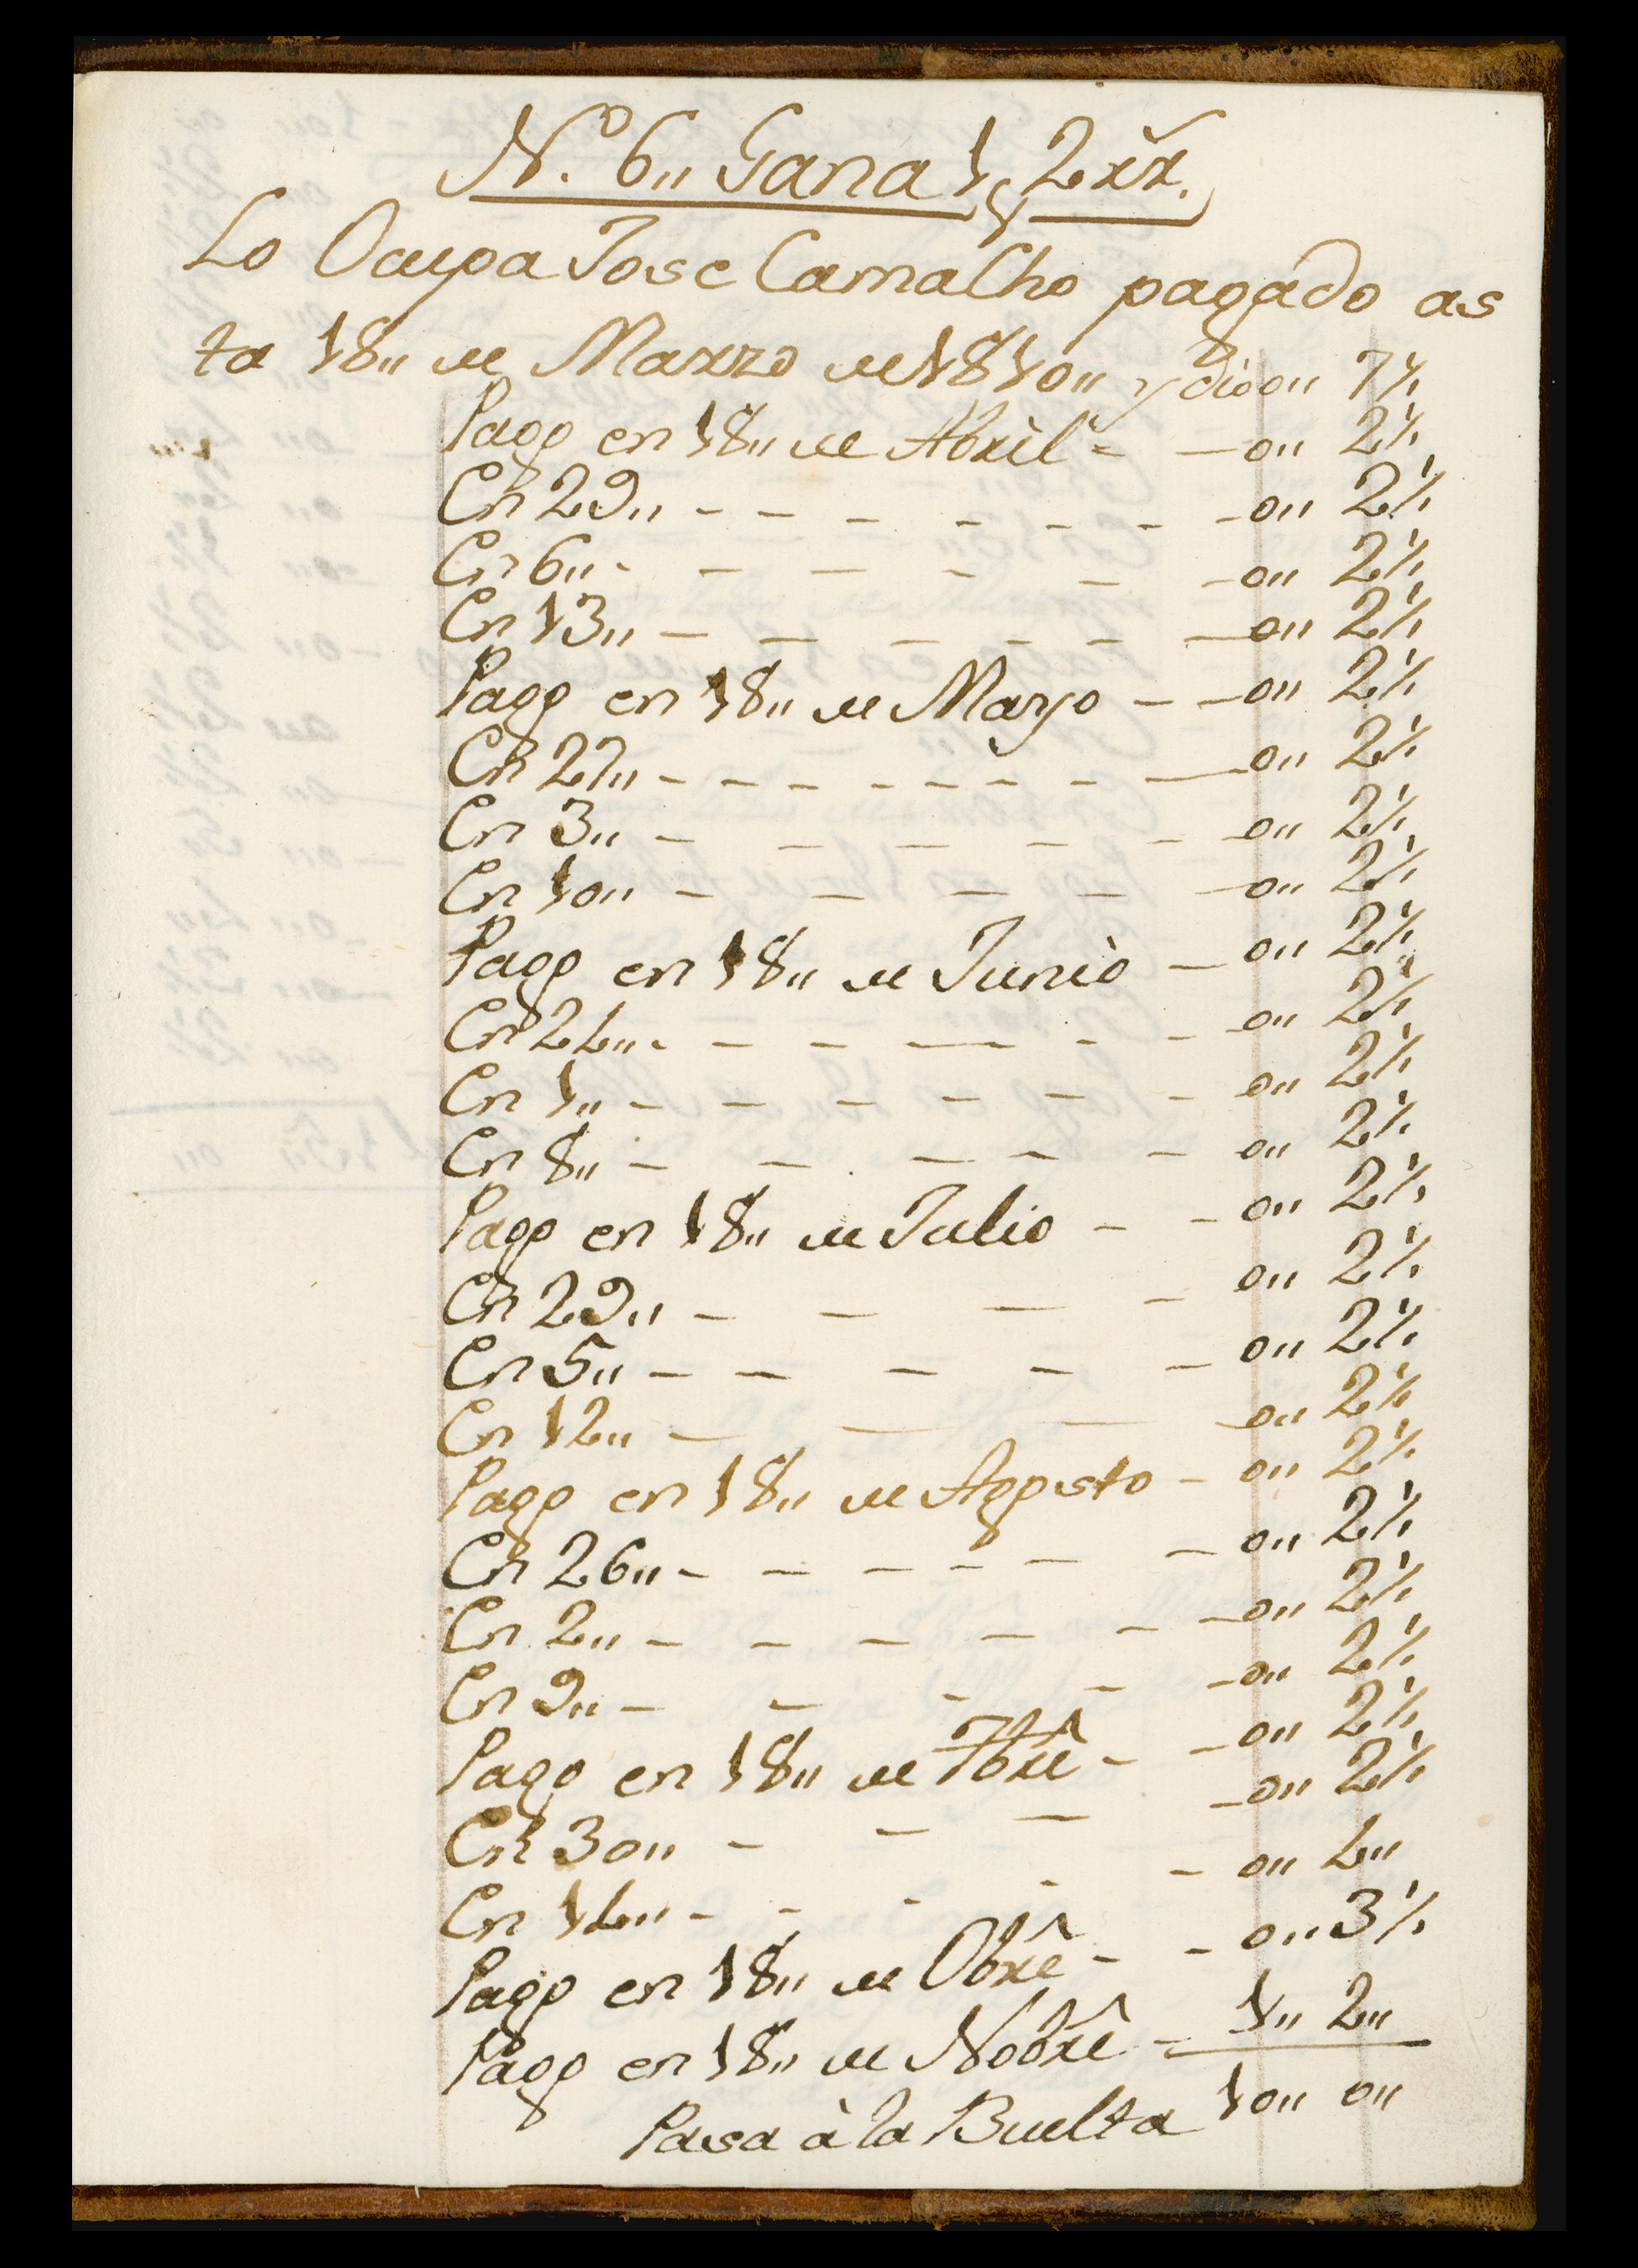 N.º 6,, Gana 1 p 2 rr.
Lo Ocupa Jose CamaCho pagado as
ta 18,, de Marzo de 1810,, y dio 0,, 7½
Pago en 18,, de Abril = 0,, 2½
En 29,, 0,, 2½
En 6,, 0,, 2½
En 13,, 0,, 2½
Pago en 18,, de Mayo 0,, 2½
En 27,, 0,, 2½
En 3,, 0,, 2½
En 10,, 0,, 2½
Pago en 18,, de Junio 0,, 2½
En 24,, 0,, 2½
En 1,, 0,, 2½
En 8,, 0,, 2½
Pago en 18,, de Julio 0,, 2½
En 29,, 0,, 2½
En 5,, 0,, 2½
En 12,, 0,, 2½
Pago en 18,, de Agosto 0,, 2½
En 26,, 0,, 2½
En 2,, 0,, 2½
En 9,, 0,, 2½
Pago en 18,, de 7bre 0,, 2½
En 30,, 0,, 2½
En 14,, 0,, 4,,
Pago en 18,, de Obre 0,, 3½
Pago en 18,, de Nobre 1,, 2,,
Pasa à la Buelta 10,, 0,,